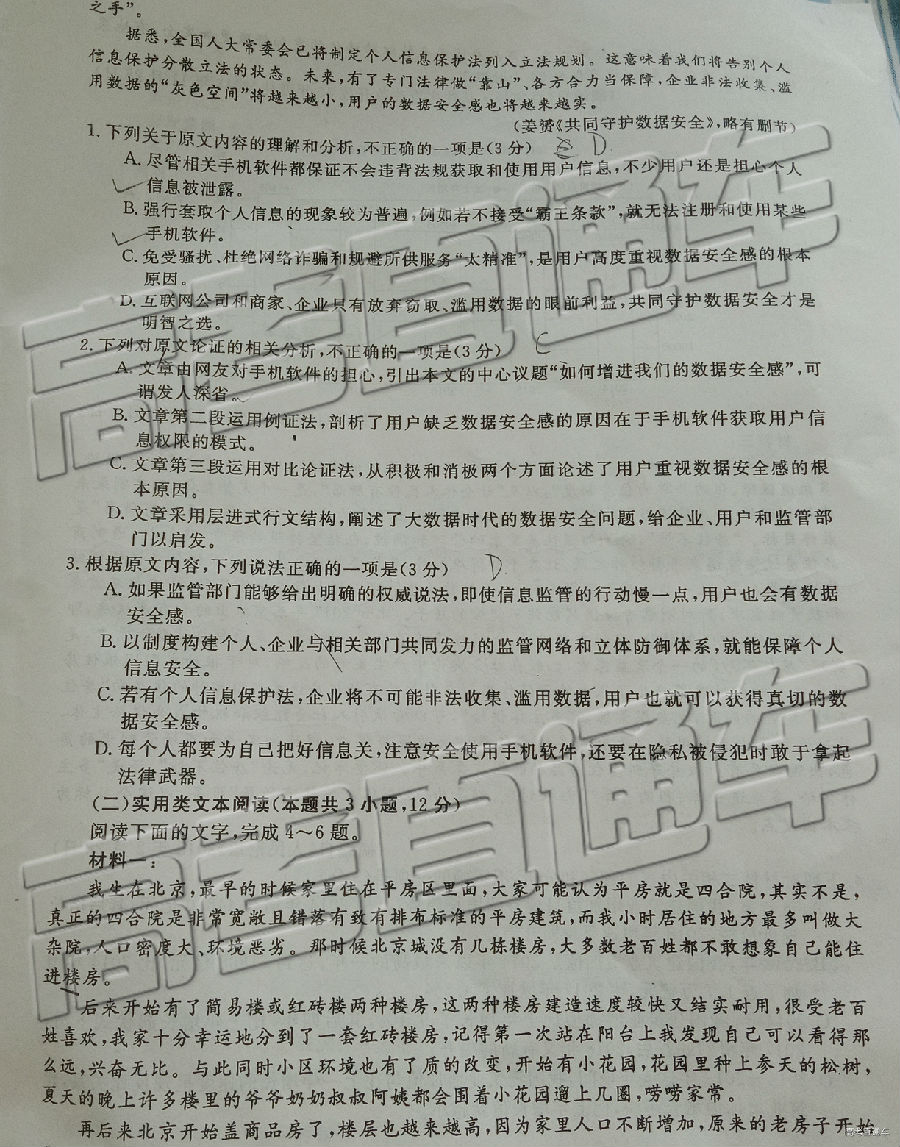 之手”。
据悉,全国人大常委会已将制定个人信息保护法列入立法规划。这意味着我们将告别个人
信息保护分散立法的状态。未来,有了专门法律做“靠山”、各方合力当保障,企业非法收集、滥
用数据的“灰色空间”将越来越小,用户的数据安全感也将越来越实。
(姜赟《共同守护数据安全》,略有删节)
1. 下列关于原文内容的理解和分析,不正确的一项是(3分) D
A. 尽管相关手机软件都保证不会违背法规获取和使用用户信息,不少用户还是担心个人
信息被泄露。
B. 强行套取个人信息的现象较为普遍,例如若不接受“霸王条款”,就无法注册和使用某些
手机软件。
C. 免受骚扰、杜绝网络诈骗和规避所供服务“太精准”,是用户高度重视数据安全感的根本
原因。
D. 互联网公司和商家、企业只有放弃窃取、滥用数据的眼前利益,共同守护数据安全才是
明智之选。
2. 下列对原文论证的相关分析,不正确的一项是(3分) C
A. 文章由网友对手机软件的担心,引出本文的中心议题“如何增进我们的数据安全感”,可
谓发人深省。
B. 文章第二段运用例证法,剖析了用户缺乏数据安全感的原因在于手机软件获取用户信
息权限的模式。
C. 文章第三段运用对比论证法,从积极和消极两个方面论述了用户重视数据安全感的根
本原因。
D. 文章采用层进式行文结构,阐述了大数据时代的数据安全问题,给企业、用户和监管部
门以启发。
3. 根据原文内容,下列说法正确的一项是(3分) D
A. 如果监管部门能够给出明确的权威说法,即使信息监管的行动慢一点,用户也会有数据
安全感。
B. 以制度构建个人、企业与相关部门共同发力的监管网络和立体防御体系,就能保障个人
信息安全。
C. 若有个人信息保护法,企业将不可能非法收集、滥用数据,用户也就可以获得真切的数
据安全感。
D. 每个人都要为自己把好信息关,注意安全使用手机软件,还要在隐私被侵犯时敢于拿起
法律武器。
(二)实用类文本阅读(本题共3小题,12分)
阅读下面的文字,完成4~6题。
材料一:
我生在北京,最早的时候家里住在平房区里面,大家可能认为平房就是四合院,其实不是,
真正的四合院是非常宽敞且错落有致有排布标准的平房建筑,而我小时居住的地方最多叫做大
杂院,人口密度大、环境恶劣。那时候北京城没有几栋楼房,大多数老百姓都不敢想象自己能住
进楼房。
后来开始有了简易楼或红砖楼两种楼房,这两种楼房建造速度较快又结实耐用,很受老百
姓喜欢,我家十分幸运地分到了一套红砖楼房,记得第一次站在阳台上我发现自己可以看得那
么远,兴奋无比。与此同时小区环境也有了质的改变,开始有小花园,花园里种上参天的松树,
夏天的晚上许多楼里的爷爷奶奶叔叔阿姨都会围着小花园遛上几圈,唠唠家常。
再后来北京开始盖商品房了,楼层也越来越高,因为家里人口不断增加,原来的老房子开始
高考直通车
高考直通车